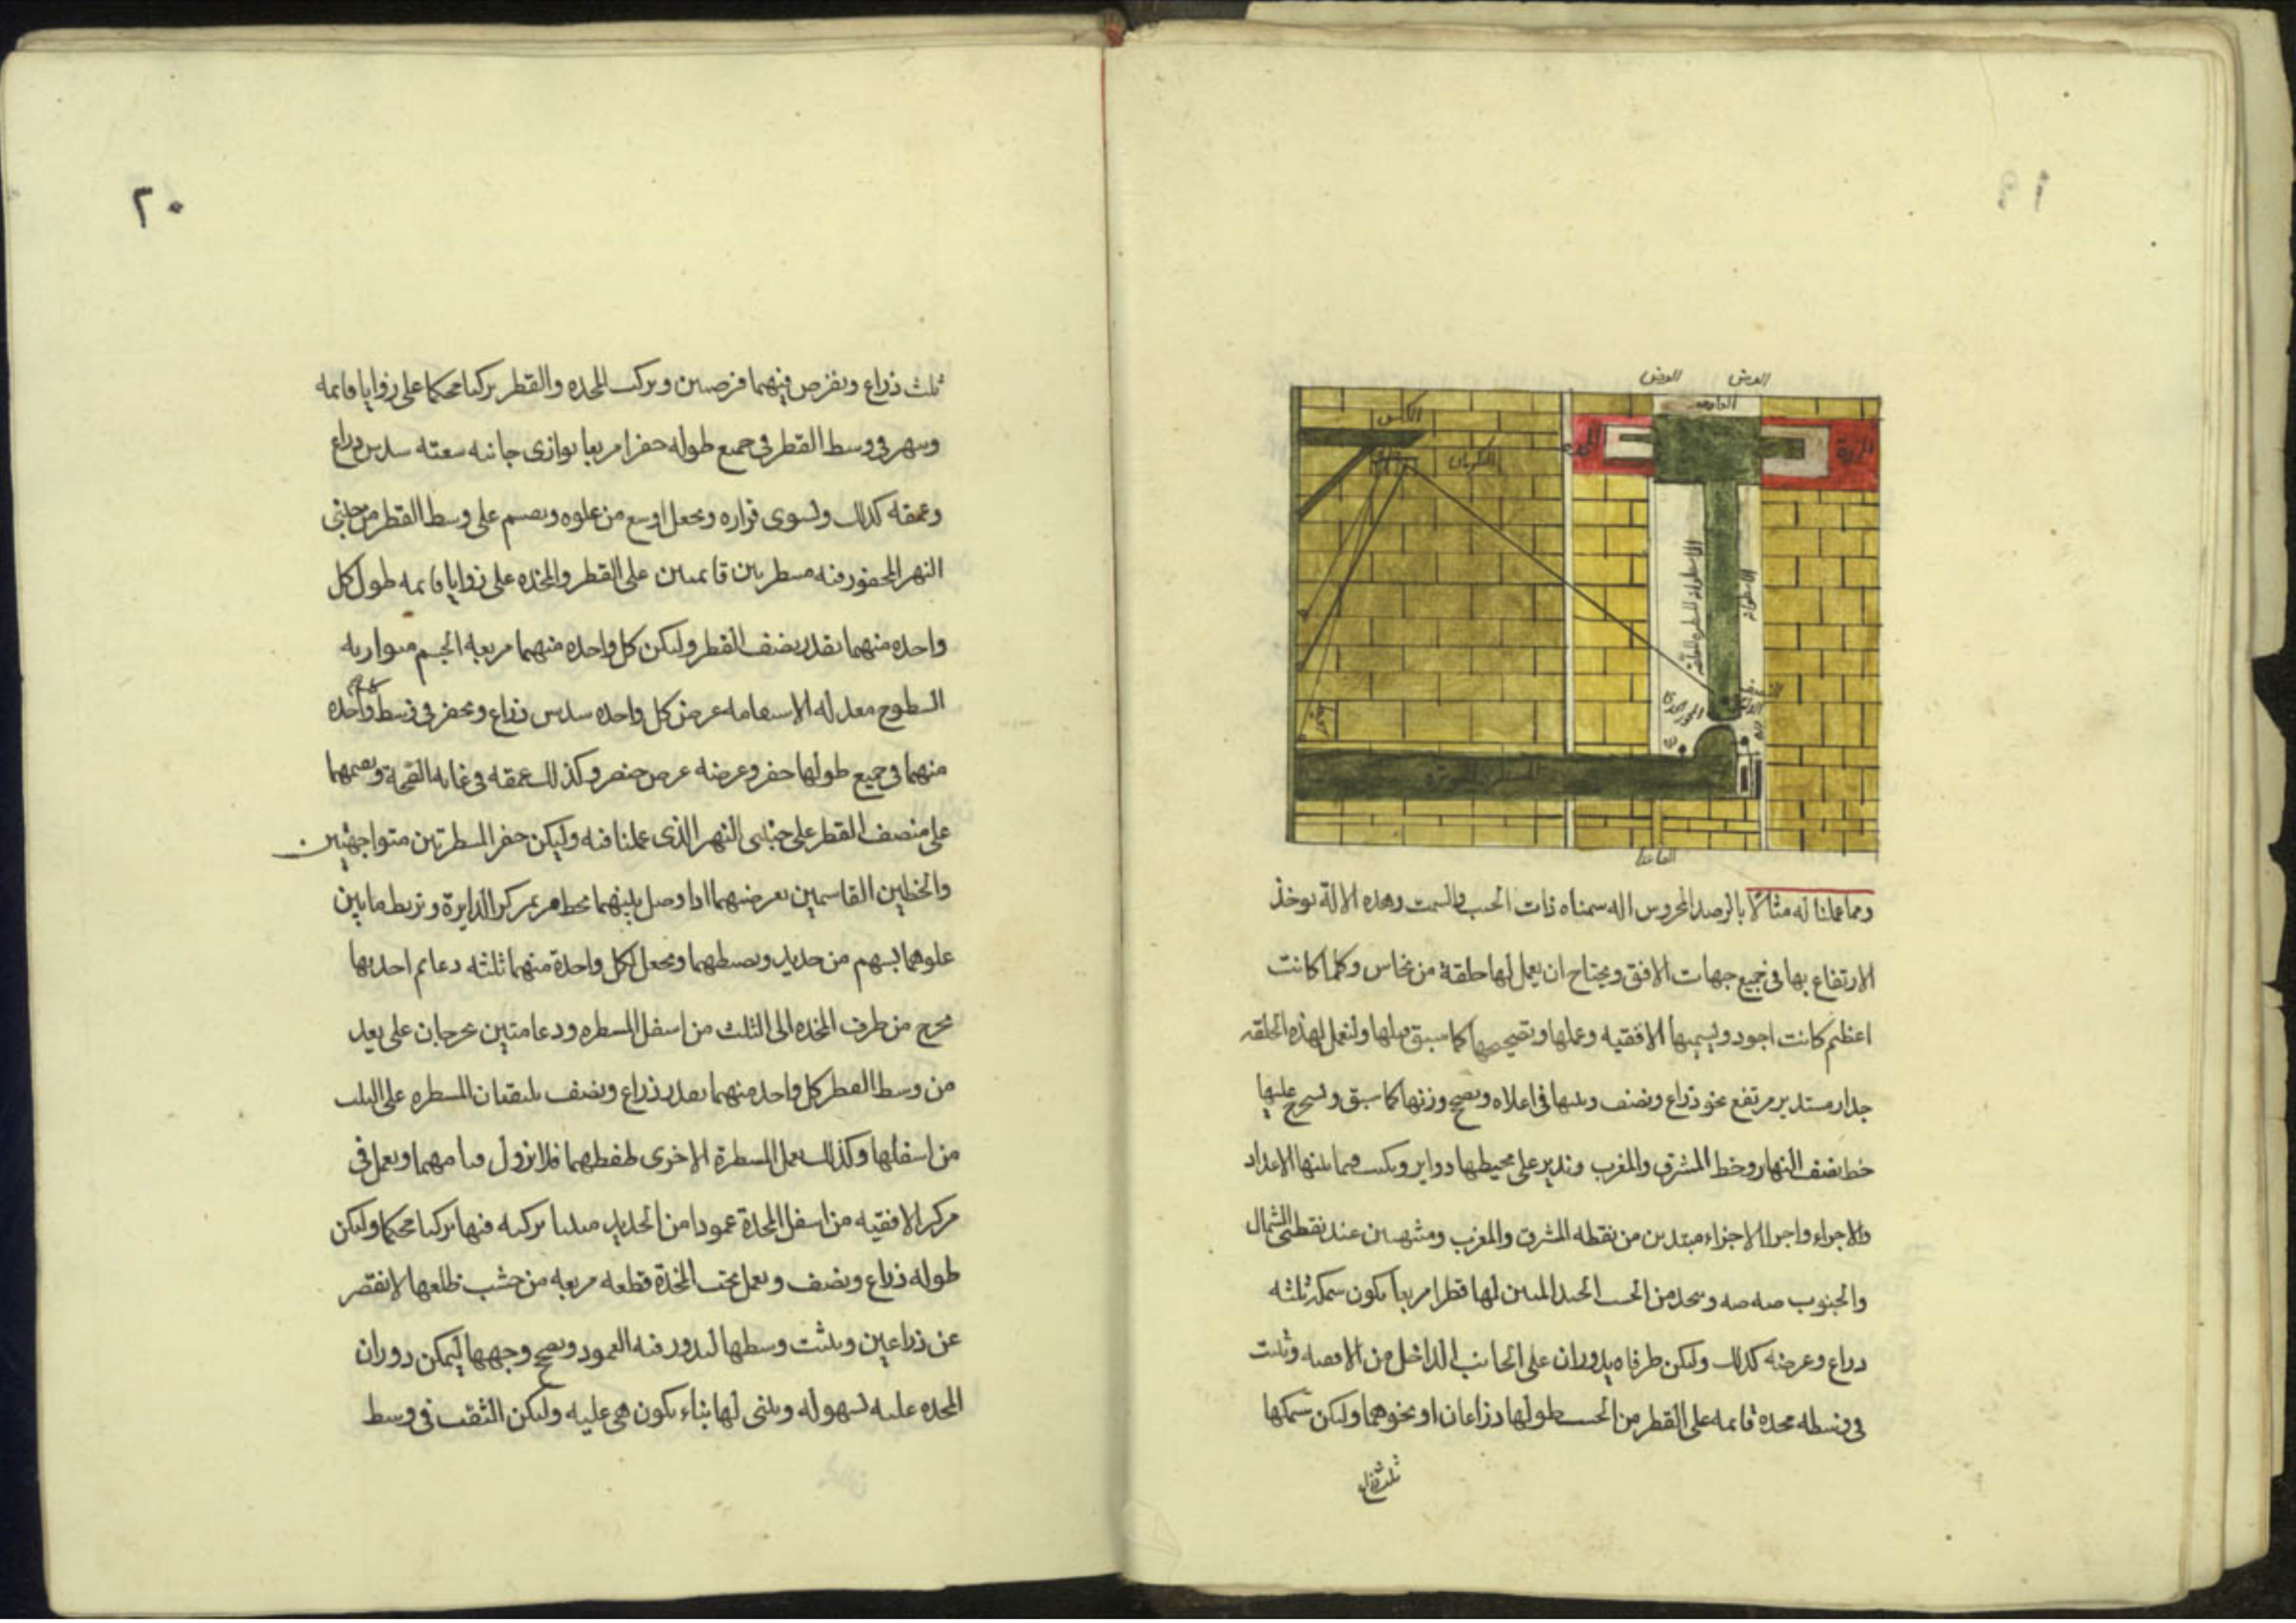 العرض العرض
الكلس
البكرتان
المخدة
الاسطوانة
القاعدة
ومما عملنا له مثالا بالرصد المحروس اله سمناه ذات الحيب والسمت وهده الالة يوخذ
الارتفاع بها في جميع جهات الافق ويحتاج ان يعمل لها حلقة من نحاس وكلما كانت
اعظم كانت اجود ويسميها الافقيه وعملها وتصحيحها كما سبق مثلها ولنعمل لهذه الحلقه
جدار مستدير مرتفع نحو ذراع ونصف ويثبتها في اعلاه ويصح وزنها كما سبق ونسخرج عليها
خط نصف النهار وخط المشرق والمغرب وندير على محيطها دواير ويكتب فيما بينها الاعداد
والاجزاء واجزا الاجزاء مبتدين من نقطه المشرق والمغرب ومنتهيين عند نقطتي الشمال
والجنوب صه صه وسحد من الحسب الجيد المتين لها قطرا مربعا يكون سمكه ثلثه
دراع وعرضه كذلك وليكن طرفاه يدوران على الجانب الداخل من الافقيه وثبت
في وسطه مخده قائمه على القطر من الحسب طولها دزاعان او نحوهما وليكن سمكها
ثلث ذراع
٢٠
ثلث ذراع ويفرض فيهما فرضين ويركب المخده والقطر تركيبا محكما على زوايا قايمه
وينهر في وسط القطر في جميع طوله حفرا مربعا يوازى جانبه سعته سدس دراع
وعمقه كذلك ولسوى قراره ويجعل اوسع من علوه ويصمم على وسط القطر من جنبتى
النهر المحفور فيه مسطرتين قائمتين على القطر والمخده على زوايا قايمه طول كل
واحده منهما بقدر نصف القطر وليكن كل واحده منهما مربعه الجسم متوازيه
السطوح معدله الاستقامه عرض كل واحده سدس ذراع ويحفر في وسط واحده
منهما في جميع طولها حفر وعرضه عرض خنصر وكذلك عمقه في غايه الصحة ويصمهما
على منصف القطر على جنبتى النهر الذى عملنا فيه وليكن حفر المسطرتين متواجهتين
والخطين القاسمين بعرضهما اذا وصل بينهما بخط مر بمركز الدايرة ونربط مابين
علوهما بسهم من حديد ويضبطهما ويجعل لكل واحدة منهما ثلثه دعايم احديها
تخرج من طرف المخده الى الثلث من اسفل المسطره ودعامتين يخرجان على بعد
من وسط القطر كل واحد منهما بقدر ذراع ونصف يلتقيان المسطره على الثلث
من اسفلها وكذلك يعمل المسطرة الاخرى لحفظهما فلا يزول قيامهما ويعمل في
مركز الافقيه من اسفل المخدة عمودا من الحديد متينا تركبه فيها تركيبا محكما وليكن
طوله ذراع ونصف ويعمل تحت المخدة قطعه مربعه من خشب ظلعها لا ينقص
عن ذراعين ويثقب وسطها ليدور فيه العمود ويصح وجهها ليمكن دوران
المخده عليه لسهوله ويبنى لها بناء يكون هي عليه وليكن الثقب في وسط